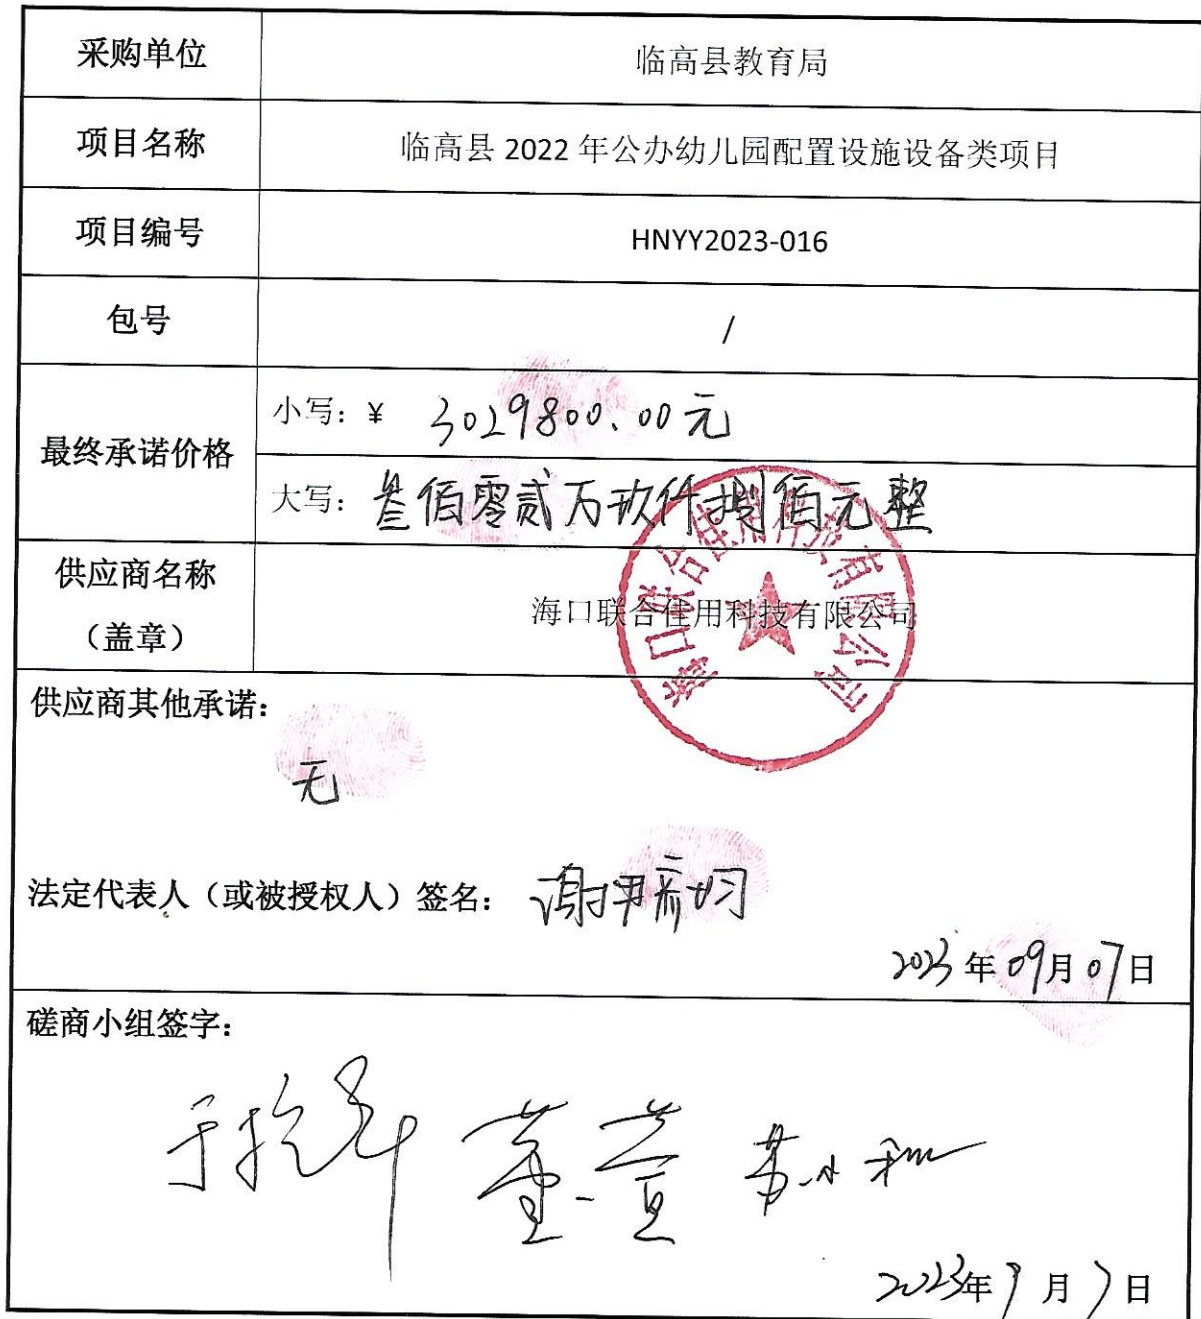 采购单位 临高县教育局
项目名称 临高县 2022 年公办幼儿园配置设施设备类项目
项目编号 HNYY2023-016
包号 /
最终承诺价格
小写：¥ 3029800.00元
大写：叁佰零贰万玖仟捌佰元整
供应商名称
（盖章）
海口联合佳用科技有限公司
海口联合佳用科技有限公司
供应商其他承诺：
无
法定代表人（或被授权人）签名：
2023 年 09月 07日
磋商小组签字：
2023年 9 月 7日